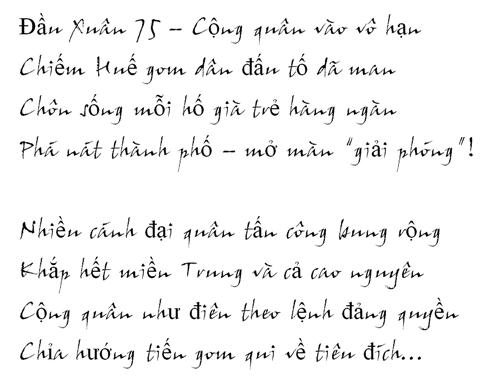 Đầu Xuân 75 – Cộng quân vào vô hạn
Chiếm Huế gom dân đấu tố dã man
Chôn sống mỗi hố già trẻ hàng ngàn
Phá nát thành phố – mở màn "giải phóng"!
Nhiều cánh đại quân tấn công bung rộng
Khắp hết miền Trung và cả cao nguyên
Cộng quân như điên theo lệnh đảng quyền
Chia hướng tiến gom qui về tiêu đích...